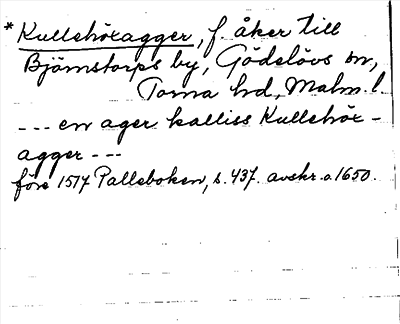 *Kullehöxagger, f. åker till
Björnstorps by, Gödelövs sn,
Torna hd, Malm. l.
--- en ager kalliss Kullehöx-
agger ---
före 1517 Palleboken, s. 437. avskr. o. 1650.